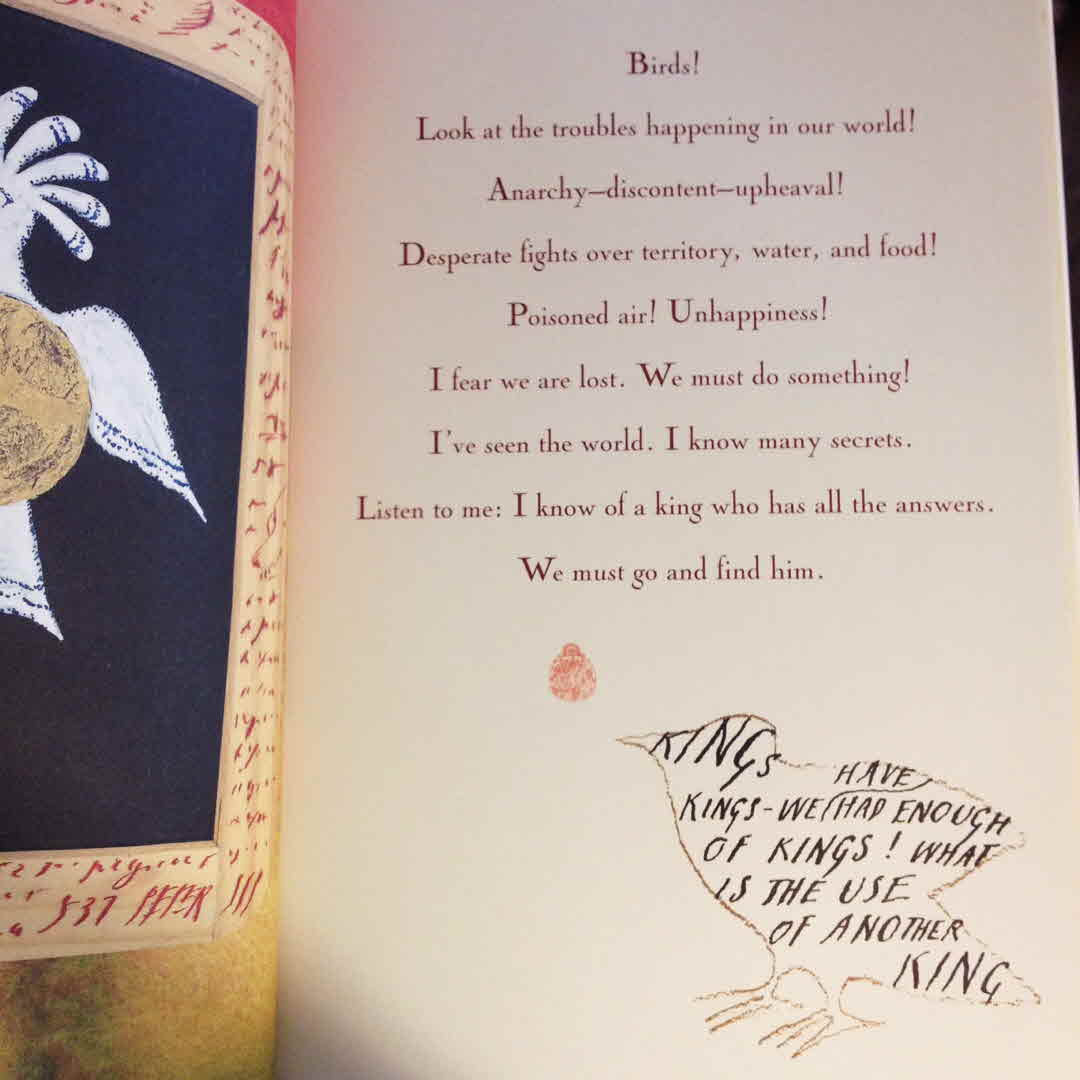 Birds!
Look at the troubles happening in our world!
Anarchy—discontent—upheaval!
Desperate fights over territory, water, and food!
Poisoned air! Unhappiness!
I fear we are lost. We must do something!
I've seen the world. I know many secrets.
Listen to me: I know of a king who has all the answers.
We must go and find him.
KINGS
HAVE
KINGS-WE HAD ENOUGH
OF KINGS! WHAT
IS THE USE
OF ANOTHER
KING
537 PETER